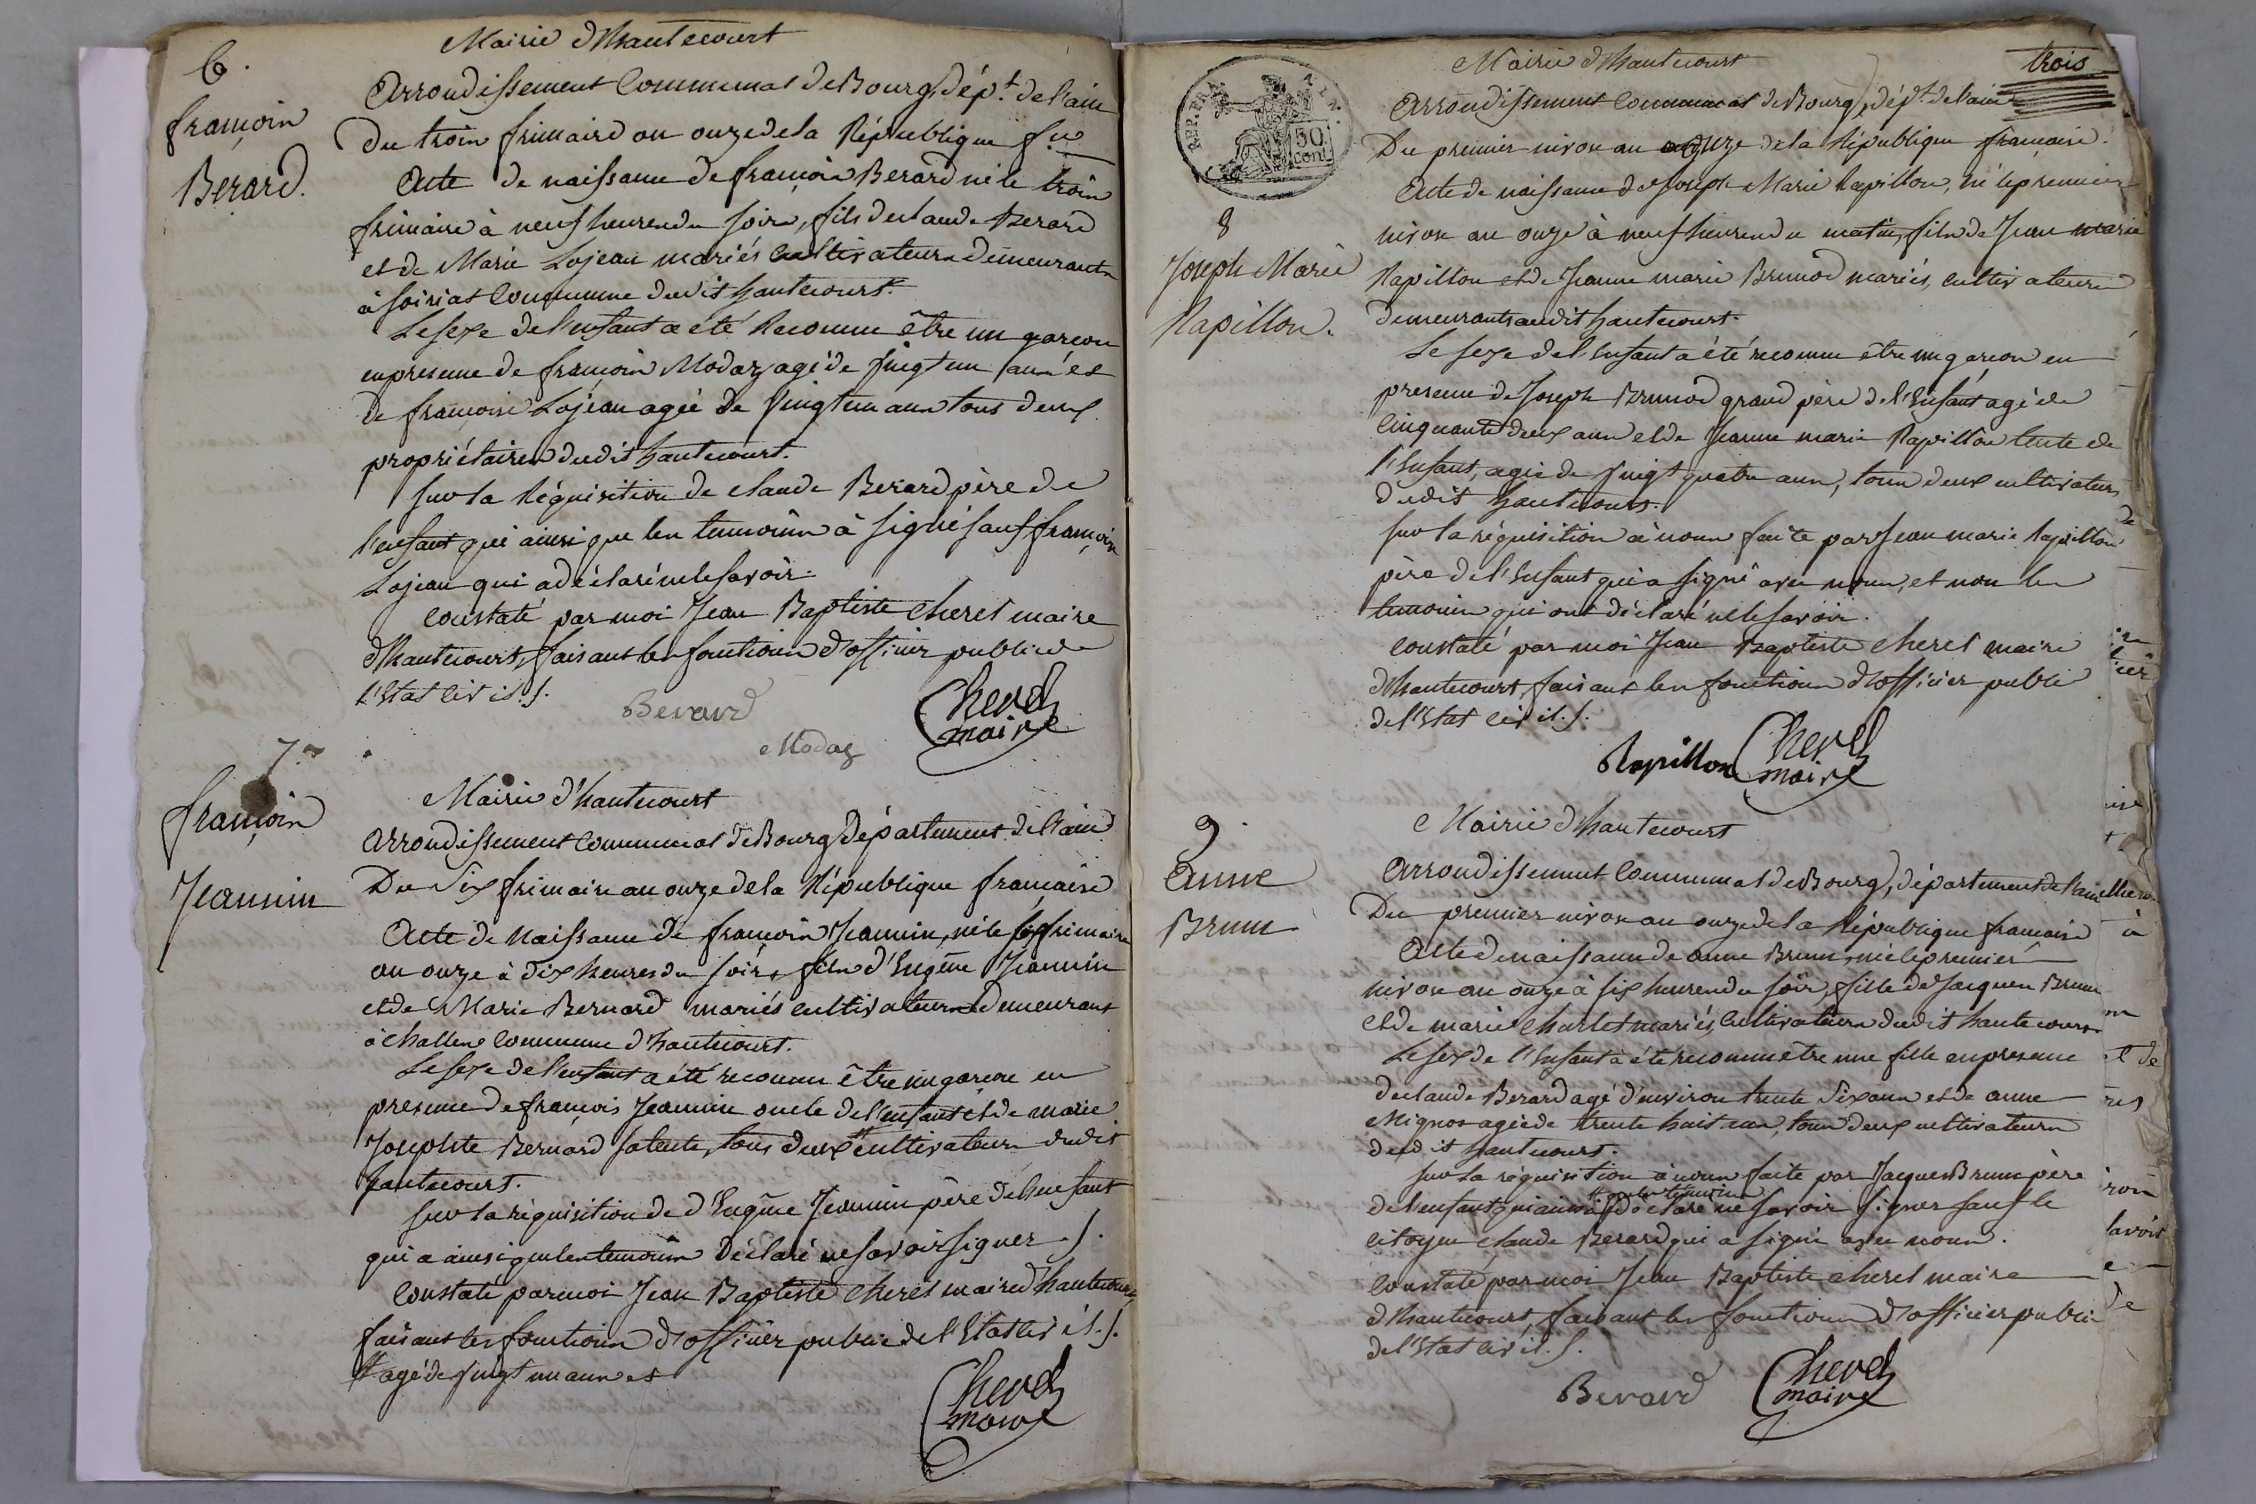 6.
françois
Berard.
Mairie d'hautecourt
Arrondissement Communal de Bourg, dép.t de l'ain
Du trois frimaire an onze de la République f.se
Acte de naissance de françois Berard né le trois
frimaire à neuf heures du soir, fils de claude Berard
et de Marie Lojean mariés cultivateurs demeurants
à soiriat Commune dudit hautecourt.
Le sexe de l'enfant a été Reconnu être un garçon
en presence de françois Modaz agé de vingt un ans et
de françoise Lojean agée de vingt un ans tous deux
propriétaires dudit hautecourt.
sur la Réquisition de claude Berard père de
l'enfant qui ainsi que les temoins à signé sauf françoise
Lojean qui a déclaré ne le savoir.
Constaté par moi Jean Baptiste Cherel maire
d'hautecourt, faisant les fonctions d'officier public de
l'Etat Civil./.
Berard
Modaz
Cherel
maire
7.
françois
Jeannin
Mairie d'hautecourt
Arrondissement Communal de Bourg, Département de l'ain
Du Six frimaire an onze de la République française
Acte de Naissance de françois Jeannin, né le six frimaire
an onze à dix heures du soir, fils d'Eugène Jeannin
et de Marie Bernard mariés cultivateurs demeurant
à Challes Commune d'hautecourt.
Le sexe de l'enfant a été reconnu être un garçon en
presence de françois Jeannin oncle de l'enfant et de marie
Josephte Bernard sa tente, tous deux # cultivateurs dudit
hautecourt.
sur la réquisition de d'Eugène Jeannin père de l'enfant
qui a ainsi que les temoins Déclaré ne savoir signer ./.
Constaté par moi Jean Baptiste Cherel maire d'hautecourt,
faisant les fonctions d'officier public de l'Etat Civil./.
# agé de vingt un ans et
Cherel
maire
trois
REP. FRA.
50
cent.
Mairie d'hautecourt
Arrondissement Communal de Bourg, dép.t de l'ain
Du premier nivose an onze de la République française.
8
Joseph Marie
Papillon.
Acte de naissance de Joseph Marie Papillon, né le premier
nivose an onze à neuf heures du matin, fils de Jean marie
Papillon et de Jeanne marie Brunod mariés, cultivateurs
demeurants audit hautecourt.
Le sexe de l'Enfant a été reconnu être un garçon en
presence de Joseph Brunod grand père de l'Enfant agé de
cinquante deux ans et de Jeanne marie Papillon tente de
l'Enfant, agée de vingt quatre ans, tous deux cultivateurs
dudit hautecourt.
sur la réquisition à nous faite par Jean marie Papillon
père de l'Enfant qui a signé avec nous, et non les
temoins qui ont déclaré ne le savoir.
Constaté par moi Jean Baptiste Cherel maire
d'hautecourt, faisant les fonctions d'officier public
de l'Etat Civil./.
Papillon
Cherel
maire
9.
Anne
Brun
Mairie d'hautecourt
Arrondissement Communal de Bourg, département de l'ain
Du premier nivose an onze de la République française
Acte de naissance de anne Brun, née le premier
nivose an onze à six heures du soir, fille de Jacques Brun
et de marie Charlet mariés, Cultivateurs dudit hautecourt
Le sexe de l'Enfant a été reconnu être une fille en presence
de claude Berard agé d'environ trente six ans et de anne
Mignot agée de trente huit ans, tous deux cultivateurs
dudit hautecourt.
sur la réquisition à nous faite par Jacques Brun père
de l'enfant qui ainsi que les temoins a Déclaré ne savoir signer sauf le
citoyen claude Berard qui a signé avec nous.
Constaté par moi Jean Baptiste Cherel maire
d'hautecourt, faisant les fonctions d'officier public
de l'Etat Civil./.
Berard
Cherel
maire